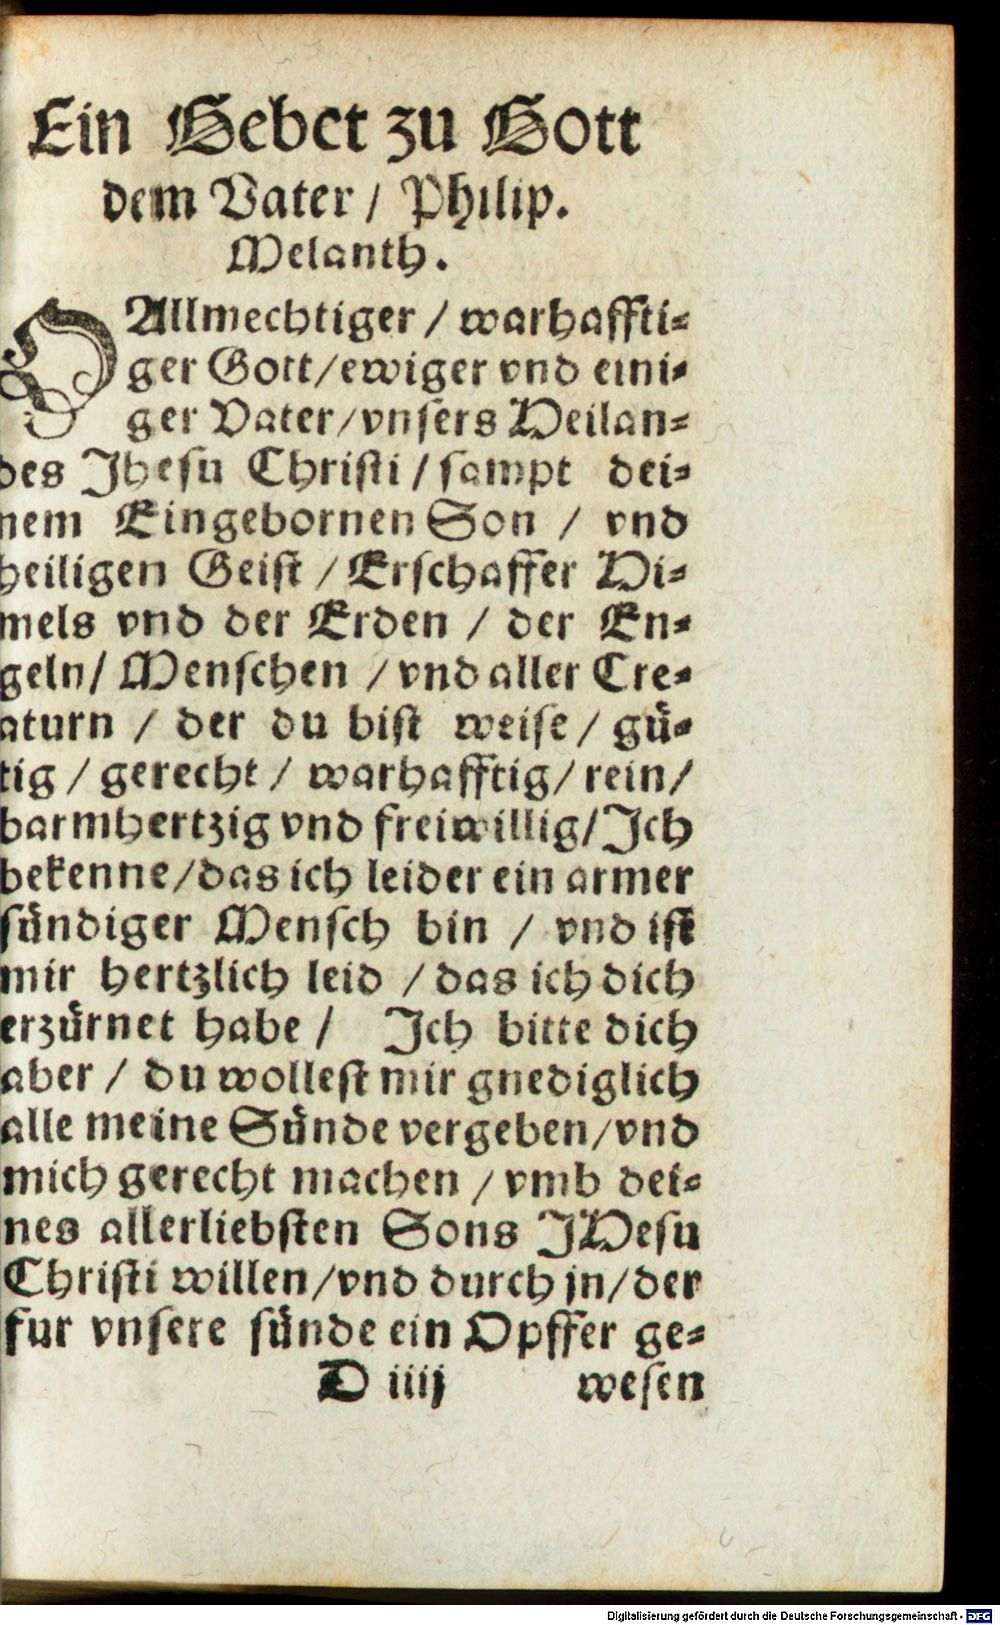 Ein Gebet zu Gott
dem Vater / Philip.
Melanth.
O Allmechtiger / warhaffti⸗
ger Gott/ewiger vnd eini⸗
ger Vater/vnsers Heilan⸗
des Jhesu Christi / sampt dei⸗
nem Eingebornen Son / vnd
heiligen Geist / Erschaffer Hi⸗
mels vnd der Erden / der En⸗
geln/ Menschen / vnd aller Cre⸗
aturn / der du bist weise / gü⸗
tig / gerecht / warhafftig/ rein/
barmhertzig vnd freiwillig/ Jch
bekenne/das ich leider ein armer
sündiger Mensch bin / vnd ist
mir hertzlich leid / das ich dich
erzürnet habe / Jch bitte dich
aber / du wollest mir gnediglich
alle meine Sünde vergeben/vnd
mich gerecht machen / vmb dei⸗
nes allerliebsten Sons JHesu
Christi willen/vnd durch jn/der
fur vnsere sünde ein Opffer ge⸗
D iiij wesen
Digitalisierung gefördert durch die Deutsche Forschungsgemeinschaft - DFG